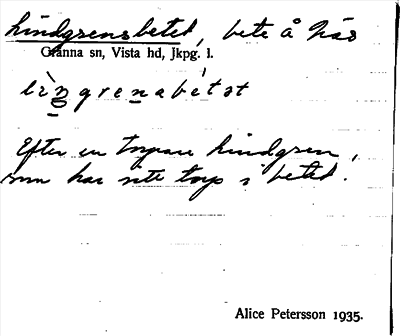 Lindgrensbetet, bete å Näs
Gränna sn, Vista hd, Jkpg. l.
lìŋgrenabét ət
Efter en torpare Lindgren,
som har sitt torp i betet.
Alice Petersson 1935.